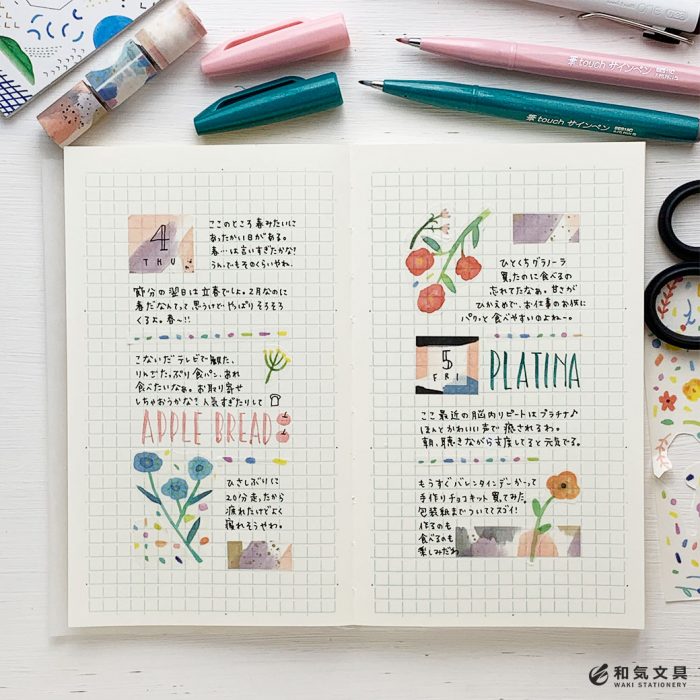 4
THU
ここのところ春みたいに
あったかい日がある。
春…は言いすぎたかな?
うん、でもそのくらいやね.
節分の翌日は立春でしょ。2月なのに
春だなんてって思うけど やっぱり そろそろ
くるよ。春〜!!
こないだテレビで観た、
りんごたっぷり食パン、あれ
食べたいなぁ。お取り寄せ
しちゃおうかな? 人気すぎたりして
APPLE BREAD
ひさしぶりに
20分走ったから
疲れたけどよく
寝れそうやわ。
ひとくちグラノーラ
買ったのに食べるの
忘れてたなぁ。甘さが
ひかえめで、お仕事のお供に
パクッと食べやすいのよねー。
5
FRI
PLATINA
ここ最近の脳内リピートはプラチナ♪
ほんとかわいい声で癒されるわ。
朝、聴きながら支度してると元気でる。
もうすぐバレンタインデーかって
手作りチョコキット買ってみた。
包装紙までついててスゴイ!
作るのも
食べるのも
楽しみだわ
筆touch サインペン
筆touch サインペン
和気文具
WAKI STATIONERY